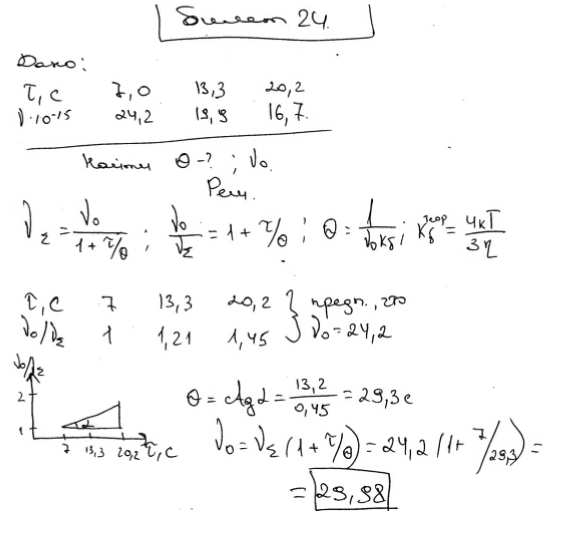 Билет 24.
Дано:
τ, с 7,0 13,3 20,2
ν·10⁻¹⁵ 24,2 19,9 16,7
Найти θ-? ; ν₀.
Реш.
ν_Σ = ν₀/(1+τ/θ) ; ν₀/ν_Σ = 1+τ/θ ; θ = 1/(ν₀K_б) ; K_б^теор = 4кТ/3η
τ, с 7 13,3 20,2 } предп., что
ν₀/ν_Σ 1 1,21 1,45 } ν₀=24,2
ν₀/ν_Σ
2
1
α
7 13,3 20,2 τ, с
θ = ctg α = 13,2/0,45 = 29,3 с
ν₀ = ν_Σ (1+τ/θ) = 24,2 (1+7/29,3) =
= 29,98